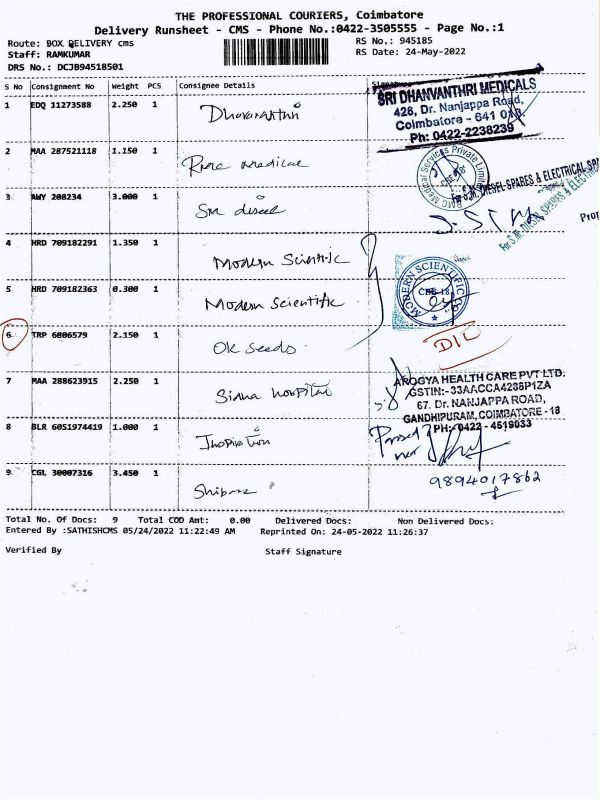 THE PROFESSIONAL COURIERS, Coimbatore
Delivery Runsheet - CMS - Phone No.:0422-3505555 - Page No.:1
Route: BOX DELIVERY cms
RS No.: 945185
Staff: RAMKUMAR
RS Date: 24-May-2022
DRS No.: DCJB94518501
S No Consignment No Weight PCS Consignee Details
1 EDQ 11273588 2.250 1
SRI DHANVANTHRI MEDICALS
426, Dr. Nanjappa Road,
Coimbatore - 641 018.
Ph: 0422-2238239
2 MAA 287521118 1.150 1
3 AWY 208234 3.000 1 Sm diesel
4 HRD 709182291 1.350 1 Modern Scientific
5 HRD 709182363 0.300 1 Modern Scientific
MODERN SCIENTIFIC CO.
6 TRP 6806579 2.150 1 OK Seeds
7 MAA 288623915 2.250 1 hospital
AROGYA HEALTH CARE PVT LTD.
GSTIN:-33AACCA4288P1ZA
67. Dr. NANJAPPA ROAD,
GANDHIPURAM, COIMBATORE - 18
PH: 0422 - 4519033
8 BLR 6051974419 1.000 1
9 CGL 30007316 3.450 1
9894017862
Total No. Of Docs: 9 Total COD Amt: 0.00 Delivered Docs: Non Delivered Docs:
Entered By :SATHISHCMS 05/24/2022 11:22:49 AM Reprinted On: 24-05-2022 11:26:37
Verified By Staff Signature